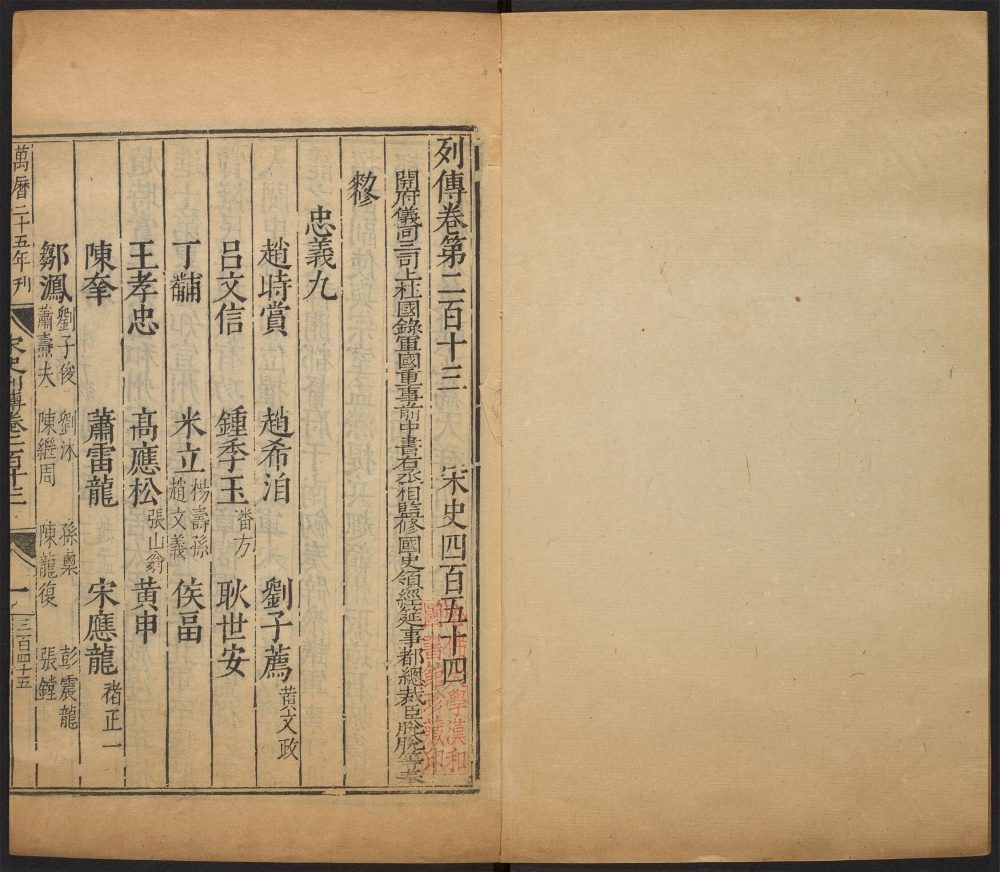 列傳卷第二百十三 宋史四百五十四
開府儀同三司上柱國錄軍國重事前中書右丞相監修國史領經筵事都總裁臣脫脫等奉
敕修
忠義九
趙時賞 趙希洎 劉子薦 黃文政
呂文信 鍾季玉 潘方 耿世安
丁黼 米立 楊壽孫 趙文義 侯畐
王孝忠 高應松 張山翁 黃申
陳羍 蕭雷龍 宋應龍 褚正一
鄒㵯 劉子俊 劉沐 孫㮚 彭震龍
蕭燾夫 陳繼周 陳龍復 張鏜
萬曆二十五年刊
宋史列傳卷二百十三
一
三百四十五
學漢和
圖書館珍藏印